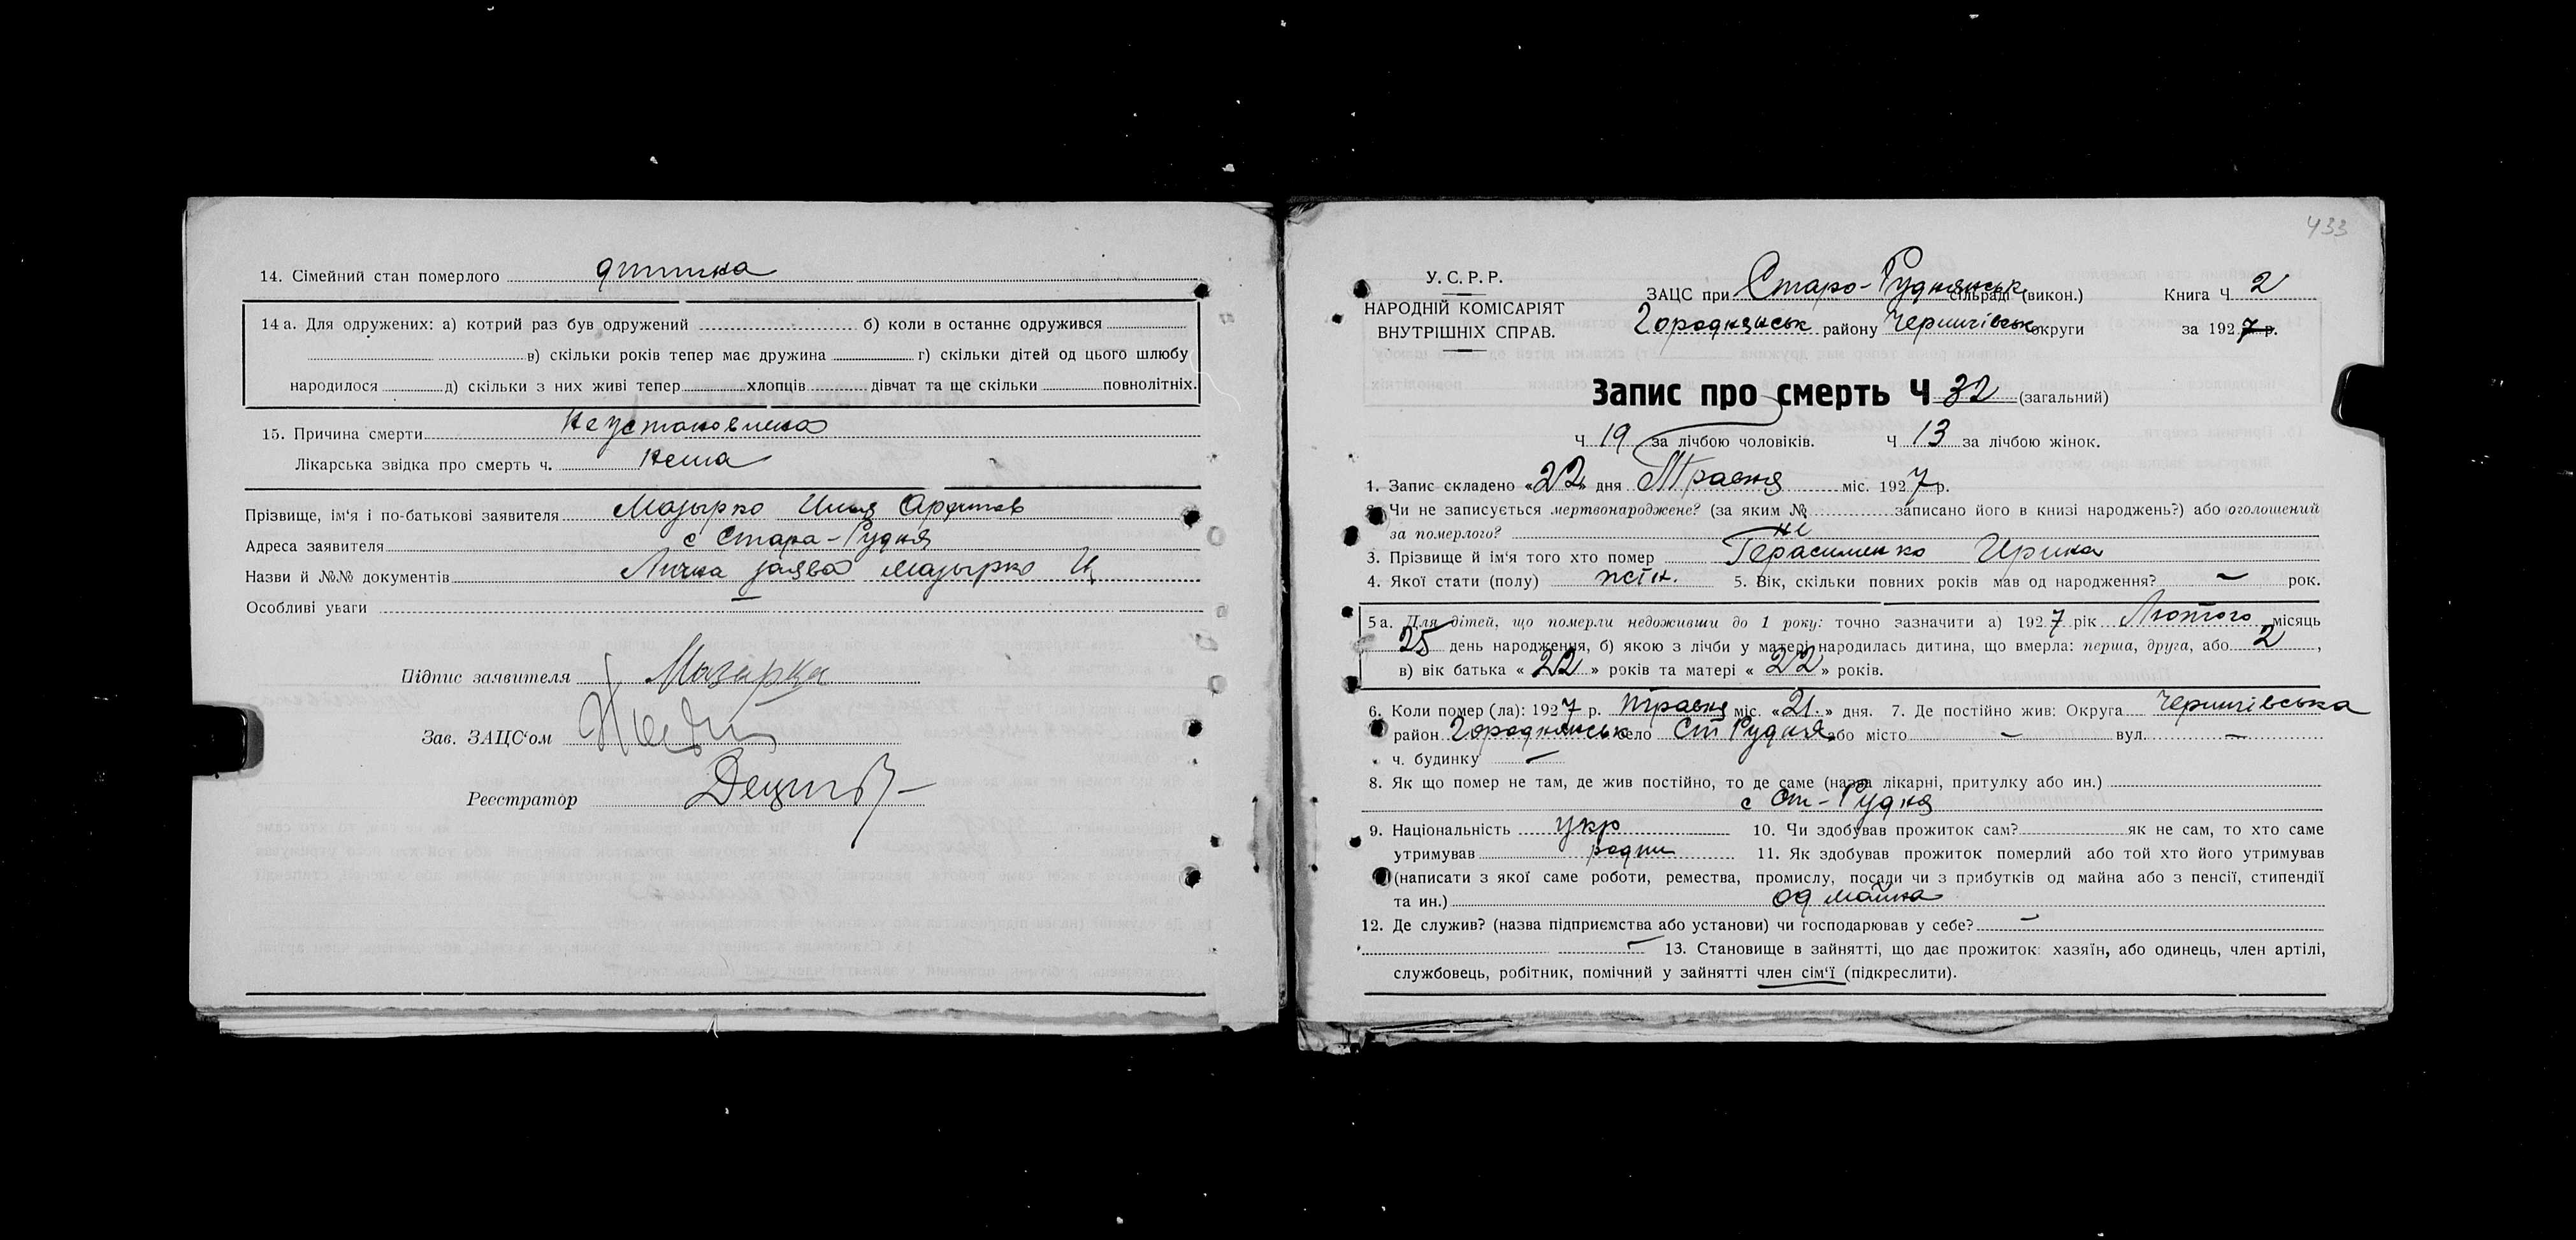 14. Сімейний стан померлого дитина
14 а. Для одружених: а) котрий раз був одружений б) коли в останнє одружився
в) скільки років тепер має дружина г) скільки дітей од цього шлюбу
народилося д) скільки з них живі тепер хлопців дівчат та ще скільки повнолітніх.
15. Причина смерти Неустановлена
Лікарська звідка про смерть ч. нема
Прізвище, ім'я і по-батькові заявителя Мазырко
Адреса заявителя с Стара-Рудня
Назви й №№ документів Лична заява Мазырко И
Особливі уваги
Підпис заявителя Мазырка
Зав. ЗАЦС'ом
Реєстратор
433
У. С. Р. Р.
НАРОДНІЙ КОМІСАРІЯТ
ВНУТРІШНІХ СПРАВ.
ЗАЦС при Старо-Руднянськ сільраді (викон.) Книга Ч 2
Городнянськ району Чернигівськ округи за 1927 р.
Запис про смерть Ч 32 (загальний)
Ч 19 за лічбою чоловіків. Ч 13 за лічбою жінок.
1. Запис складено «22» дня Травня міс. 1927 р.
2. Чи не записується мертвонароджене? (за яким № записано його в книзі народжень?) або оголошений
за померлого? не
3. Прізвище й ім'я того хто помер Герасименко Ирина
4. Якої стати (полу) жін. 5. Вік, скільки повних років мав од народження? — рок.
5 а. Для дітей, що померли недоживши до 1 року: точно зазначити а) 1927 рік Лютого місяць
25 день народження, б) якою з лічби у матері народилась дитина, що вмерла: перша, друга, або 2,
в) вік батька «22» років та матері «22» років.
6. Коли помер (ла): 1927 р. травня міс. «21.» дня. 7. Де постійно жив: Округа Чернигівська
район Городнянськ село Ст Рудня або місто — вул. —
ч. будинку —
8. Як що помер не там, де жив постійно, то де саме (назва лікарні, притулку або ин.)
с Ст-Рудня
9. Національність укр 10. Чи здобував прожиток сам? як не сам, то хто саме
утримував родит 11. Як здобував прожиток померлий або той хто його утримував
(написати з якої саме роботи, ремества, промислу, посади чи з прибутків од майна або з пенсії, стипендії
та ин.) од майна
12. Де служив? (назва підприємства або установи) чи господарював у себе? —
— 13. Становище в зайнятті, що дає прожиток: хазяїн, або одинець, член артілі,
службовець, робітник, помічний у зайнятті член сім'ї (підкреслити).